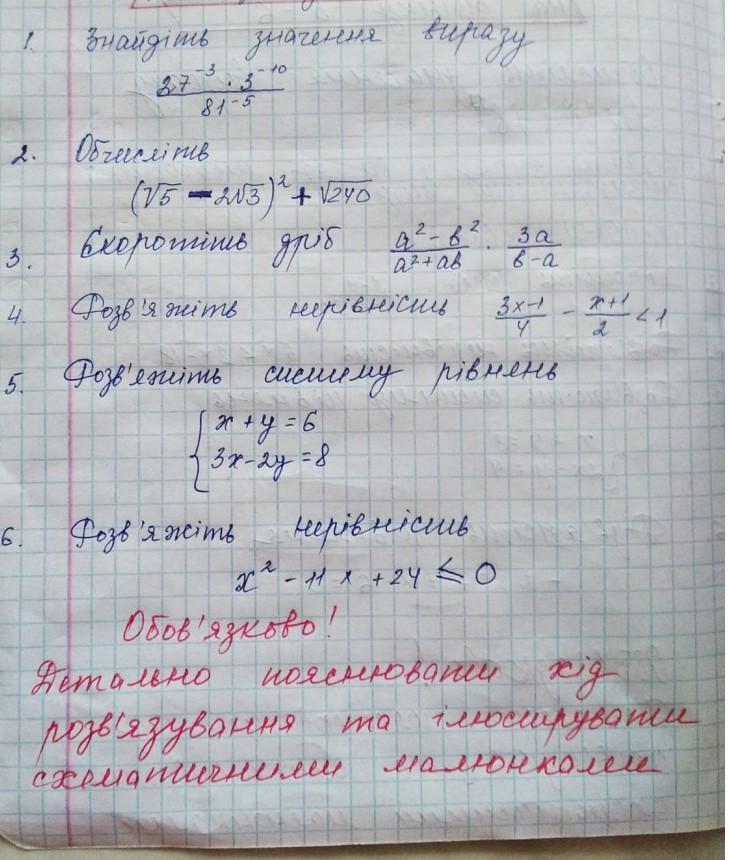 1. Знайдіть значення виразу
27⁻³ · 3⁻¹⁰
81⁻⁵
2. Обчисліть
(√5 - 2√3)² + √240
3. Скоротіть дріб a² - b² / a² + ab · 3a / b - a
4. Розв'яжіть нерівність 3x-1 / 4 - x+1 / 2 < 1
5. Розв'яжіть систему рівнянь
{ x + y = 6
3x - 2y = 8
6. Розв'яжіть нерівність
x² - 11x + 24 ≤ 0
Обов'язково!
Детально пояснювати хід
розв'язування та ілюструвати
схематичними малюнками